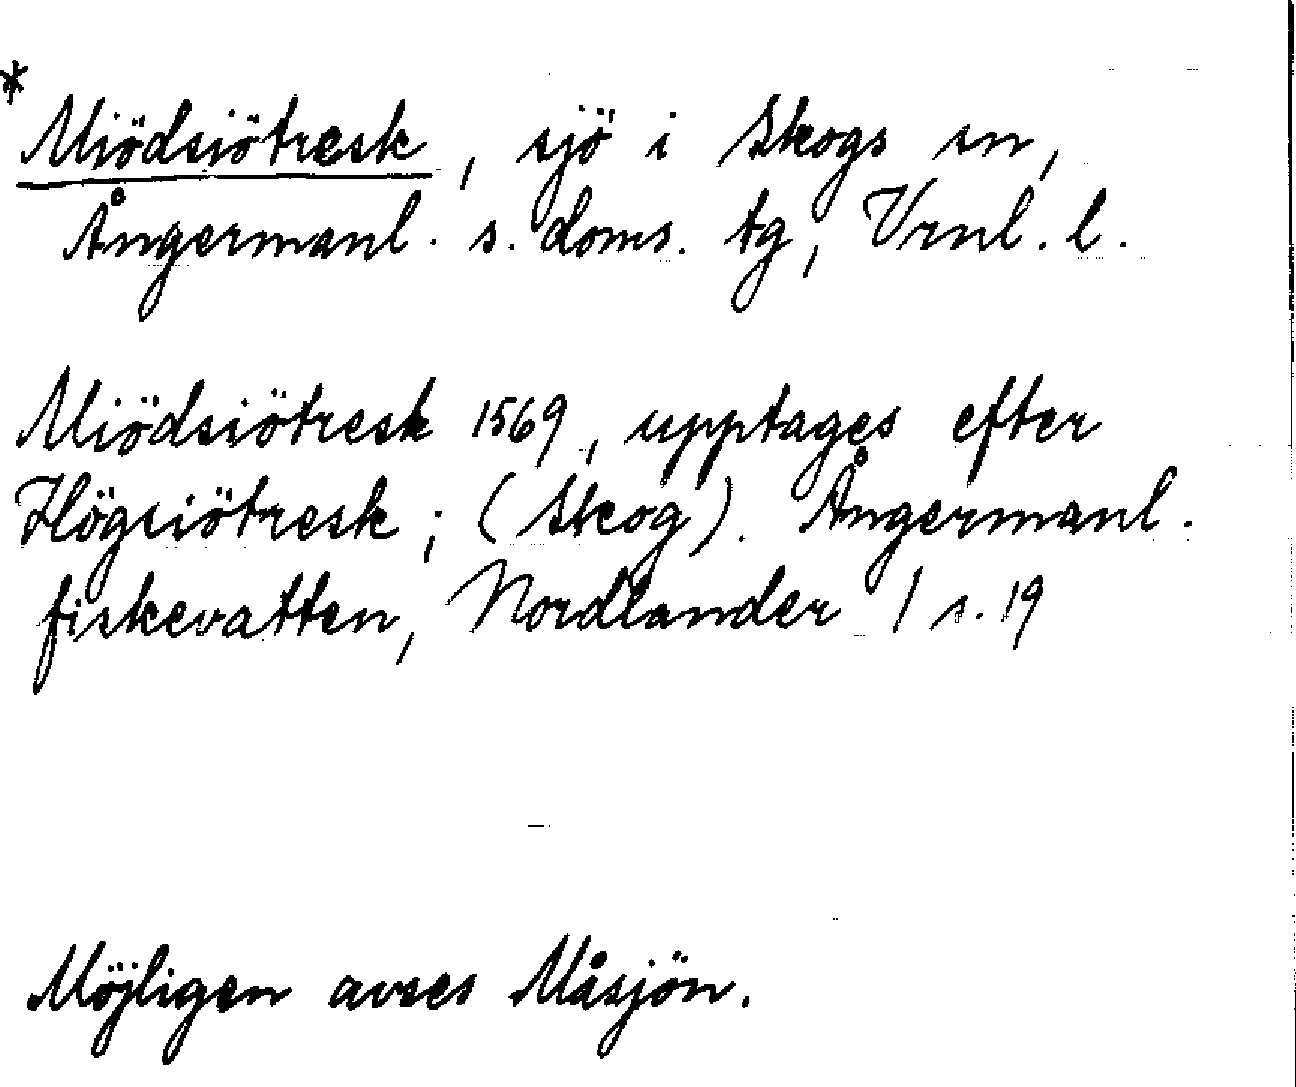 * Miödsiötresk, sjö i Skogs sn,
Ångermanl. s. doms. tg, Vrnl. l.
Miödsiötresk 1569, upptages efter
Högsiötresk; (Skog). Ångermanl.
fiskevatten, Nordlander I s. 19
Möjligen avses Måsjön.